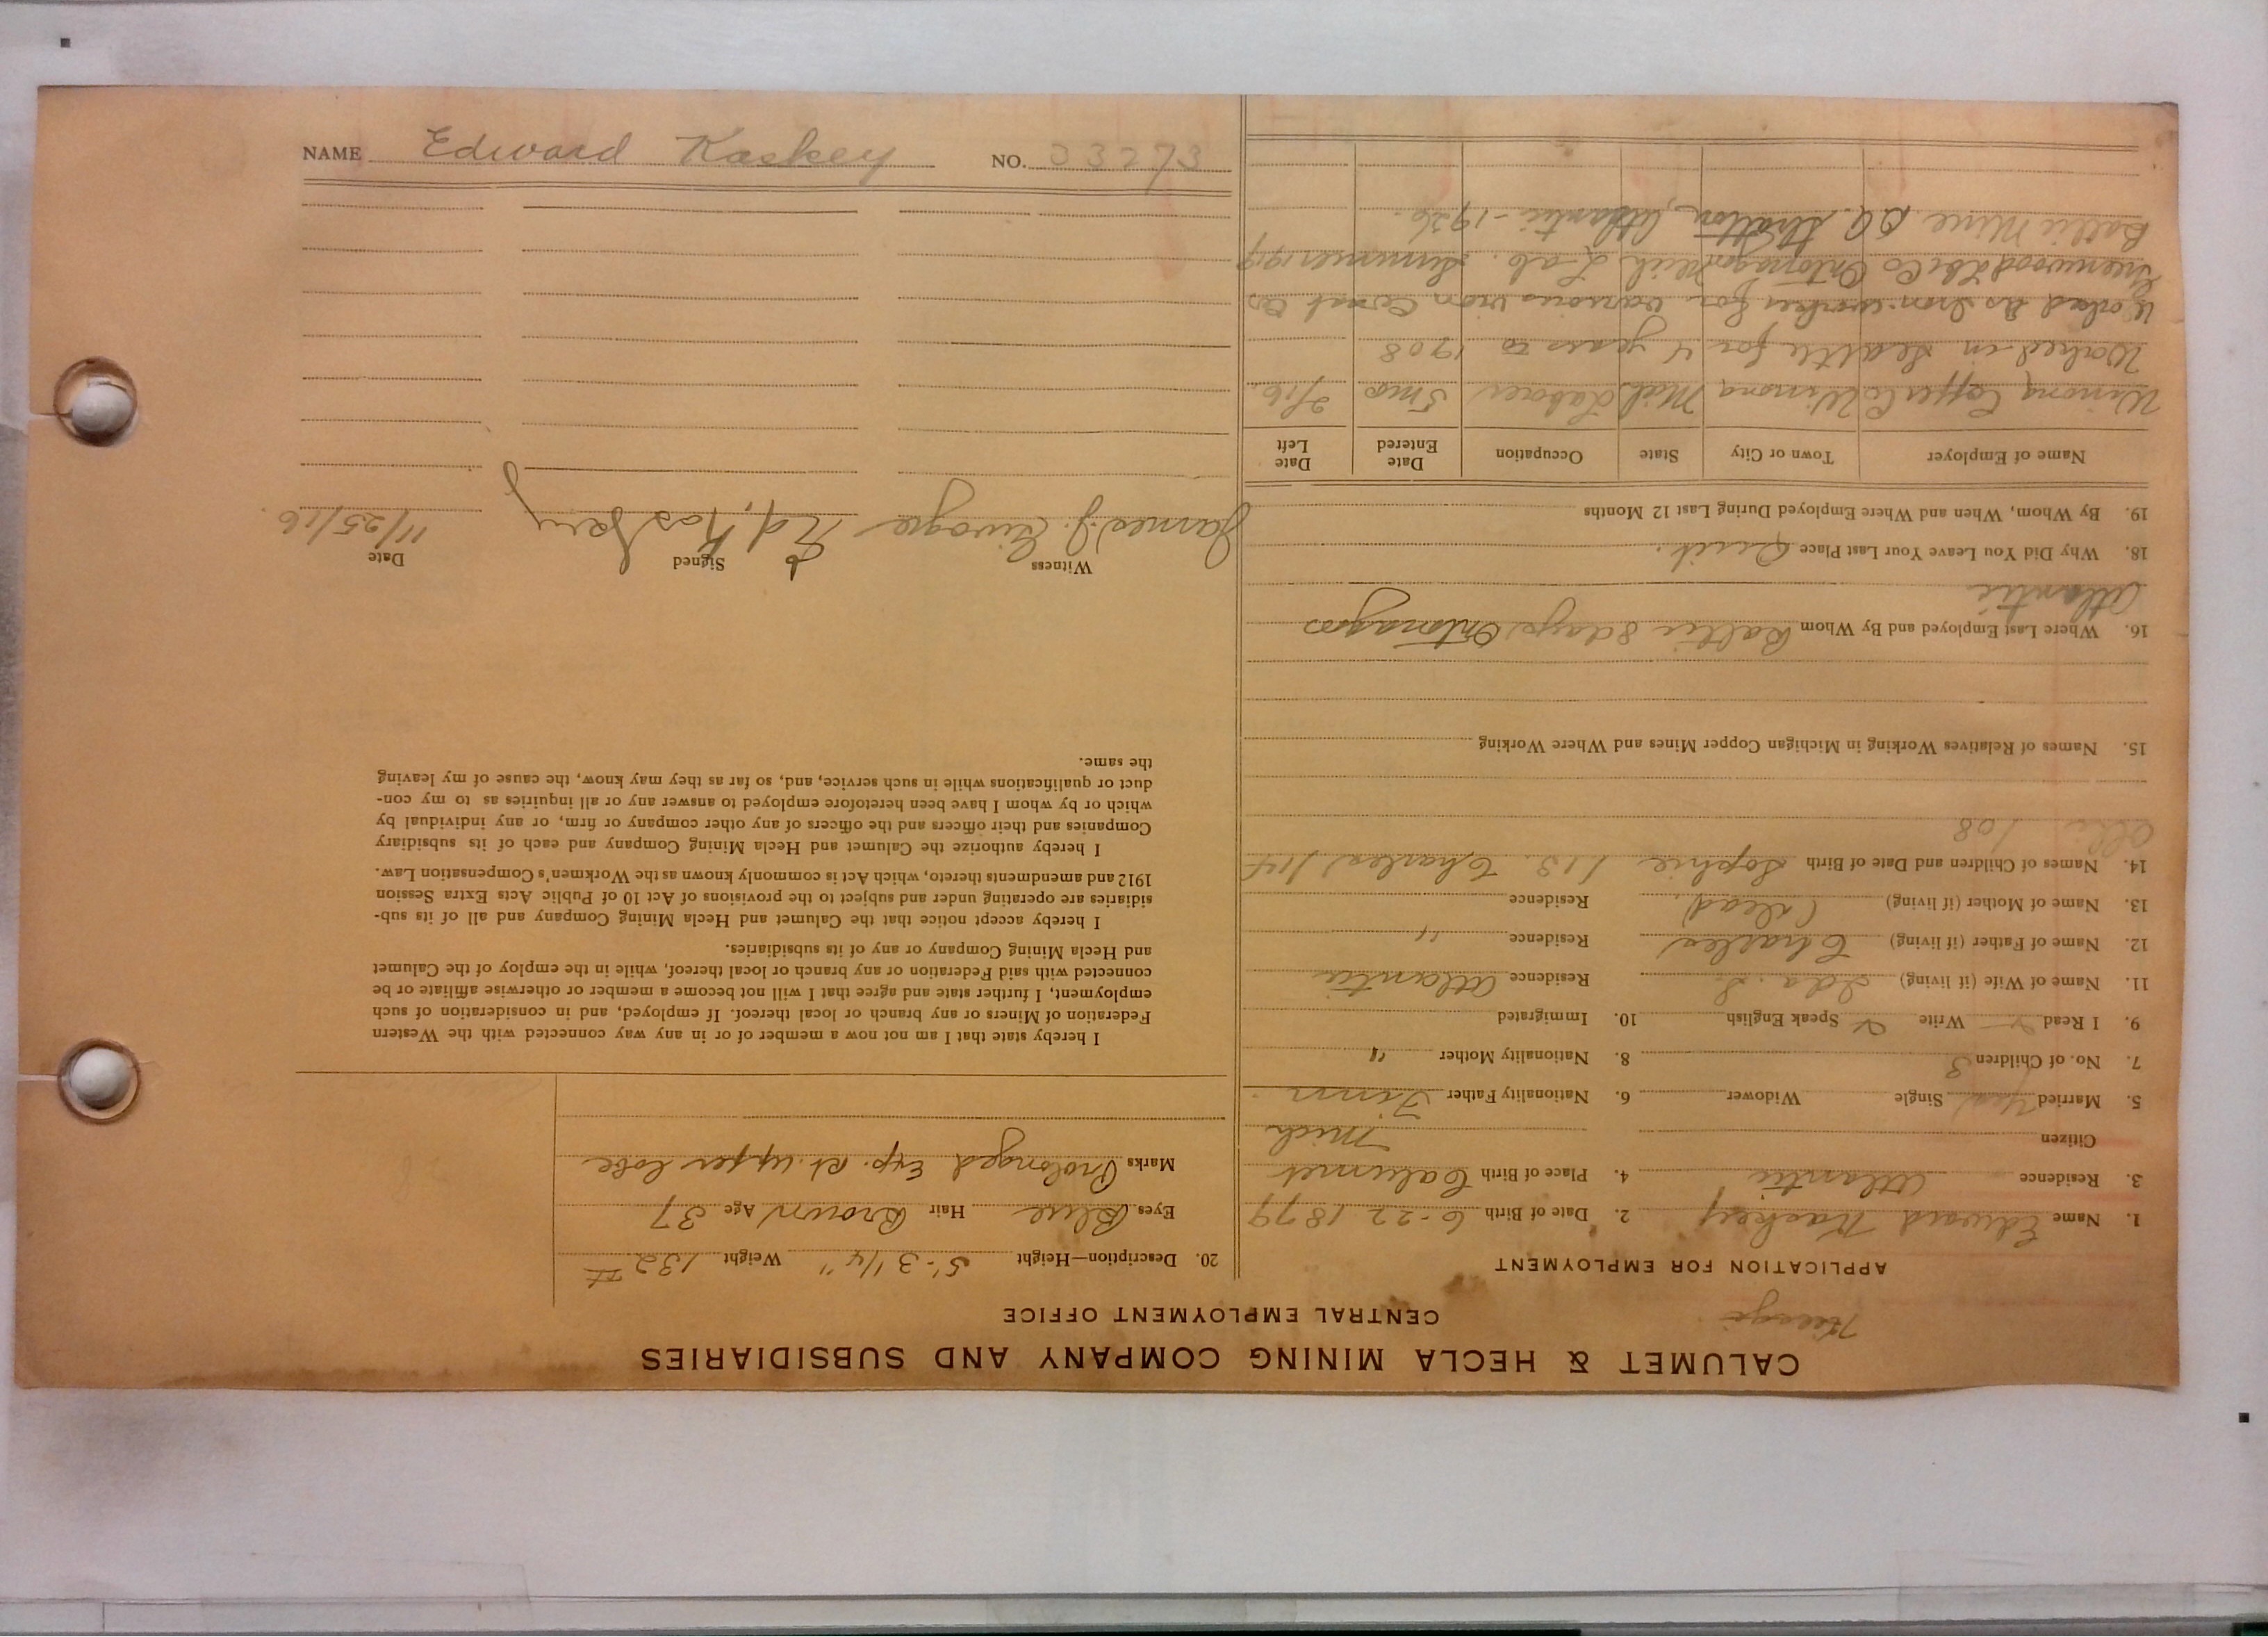 CALUMET & HECLA MINING COMPANY AND SUBSIDIARIES
CENTRAL EMPLOYMENT OFFICE
APPLICATION FOR EMPLOYMENT
1. Name Edward Kaskey 2. Date of Birth 6-22 1879
3. Residence Atlantic 4. Place of Birth Calumet
Citizen Mich
5. Married Yes Single Widower 6. Nationality Father Finn
7. No. of Children 3 8. Nationality Mother "
9. I Read Write Speak English 10. Immigrated
11. Name of Wife (if living) Ida. S. Residence Atlantic
12. Name of Father (if living) Charles Residence "
13. Name of Mother (if living) (dead) Residence
14. Names of Children and Date of Birth Sophie /13. Charles /14
/08
15. Names of Relatives Working in Michigan Copper Mines and Where Working
16. Where Last Employed and By Whom Baltic 8 days, Ontonagon
Atlantic
18. Why Did You Leave Your Last Place Quit.
19. By Whom, When and Where Employed During Last 12 Months
Name of Employer Town or City State Occupation Date Entered Date Left
Winona Copper Co Winona Mich Laborer 5 mo 2/16.
Worked in Seattle for 4 years to 1908
Worked as Iron-worker for various iron const Co
Greenwood Lbr Co Ontonagon Mich Lab. Summer 1919
Baltic Mine Atlantic - 1926.
20. Description—Height 5'-3 1/4" Weight 132 #
Eyes Blue Hair Brown Age 37
Marks Prolonged Exp. Rt. upper lobe
I hereby state that I am not now a member of or in any way connected with the Western
Federation of Miners or any branch or local thereof. If employed, and in consideration of such
employment, I further state and agree that I will not become a member or otherwise affiliate or be
connected with said Federation or any branch or local thereof, while in the employ of the Calumet
and Hecla Mining Company or any of its subsidiaries.
I hereby accept notice that the Calumet and Hecla Mining Company and all of its sub-
sidiaries are operating under and subject to the provisions of Act 10 of Public Acts Extra Session
1912 and amendments thereto, which Act is commonly known as the Workmen's Compensation Law.
I hereby authorize the Calumet and Hecla Mining Company and each of its subsidiary
Companies and their officers and the officers of any other company or firm, or any individual by
which or by whom I have been heretofore employed to answer any or all inquiries as to my con-
duct or qualifications while in such service, and, so far as they may know, the cause of my leaving
the same.
Witness Signed Date
James J. Ed, Kaskey 11/25/16.
NAME Edward Kaskey NO. 33273